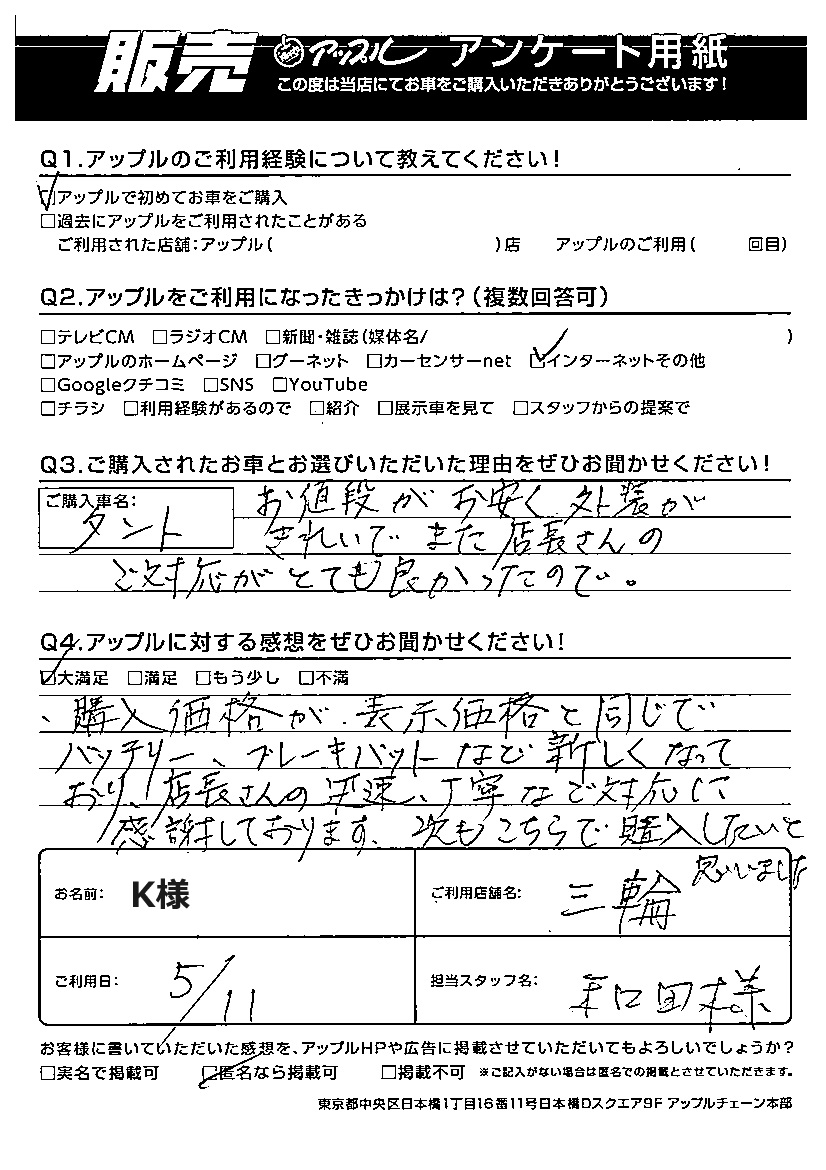 販売 アップル アンケート用紙
この度は当店にてお車をご購入いただきありがとうございます!
Q1.アップルのご利用経験について教えてください!
☑アップルで初めてお車をご購入
□過去にアップルをご利用されたことがある
ご利用された店舗:アップル( )店 アップルのご利用( 回目)
Q2.アップルをご利用になったきっかけは?(複数回答可)
□テレビCM □ラジオCM □新聞・雑誌(媒体名/ )
□アップルのホームページ □グーネット □カーセンサーnet ☑インターネットその他
□Googleクチコミ □SNS □YouTube
□チラシ □利用経験があるので □紹介 □展示車を見て □スタッフからの提案で
Q3.ご購入されたお車とお選びいただいた理由をぜひお聞かせください!
ご購入車名:
タント
お値段がお安く外装が
きれいでまた店長さんの
ご対応がとても良かったので。
Q4.アップルに対する感想をぜひお聞かせください!
☑大満足 □満足 □もう少し □不満
、購入価格が表示価格と同じで
バッテリー、ブレーキパットなど新しくなって
おり、店長さんの迅速、丁寧なご対応に
感謝しております、次もこちらで購入したいと
思いました
お名前: K様
ご利用店舗名: 三輪
ご利用日: 5/11
担当スタッフ名: 和田様
お客様に書いていただいた感想を、アップルHPや広告に掲載させていただいてもよろしいでしょうか?
□実名で掲載可 ☑匿名なら掲載可 □掲載不可 ※ご記入がない場合は匿名での掲載とさせていただきます。
東京都中央区日本橋1丁目16番11号日本橋Dスクエア9F アップルチェーン本部